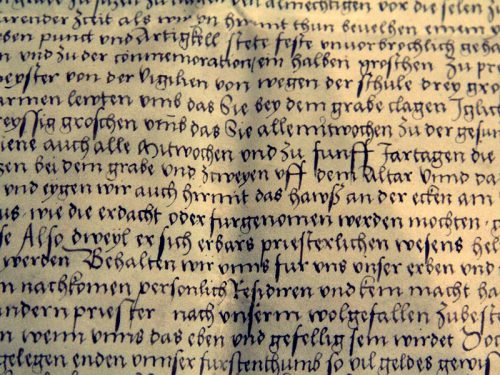 zu gaben zu handen dem almechtigen vor die selen z
urender Zceit als wir yn hirmit thun bevelhen einem y
eben punct und Artigkell stete feste unvorbrochlich geha
n und zu der commemoration ein halben groschen Zu pre
eyster von der vigilien von wegen der schule drey gro
armen lewten umb das Sie bey dem grabe clagen Iglic
reyssig groschen umb das Sie alle mitwochen zu der gesun
iene auch alle Mitwochen und zu funff Jartagen die
zen bei dem grabe und zweyen uff dem altar umd da
und eygen wir auch hirmit das hawß an der ecken am
us wie die erdacht oder furgenomen werden mochten g
se Also dweyl er sich erbars priesterlichen wesens hel
werden Behalten wir unns fur uns unser erben und
n nachkomen personlich Residiren und kein macht ha
andern priester nach unserm wolgefallen zubeste
n wenn unns das eben und gefellig sein wirdet Doc
gelegen enden unnser furstenthumb so vil geldes gewis